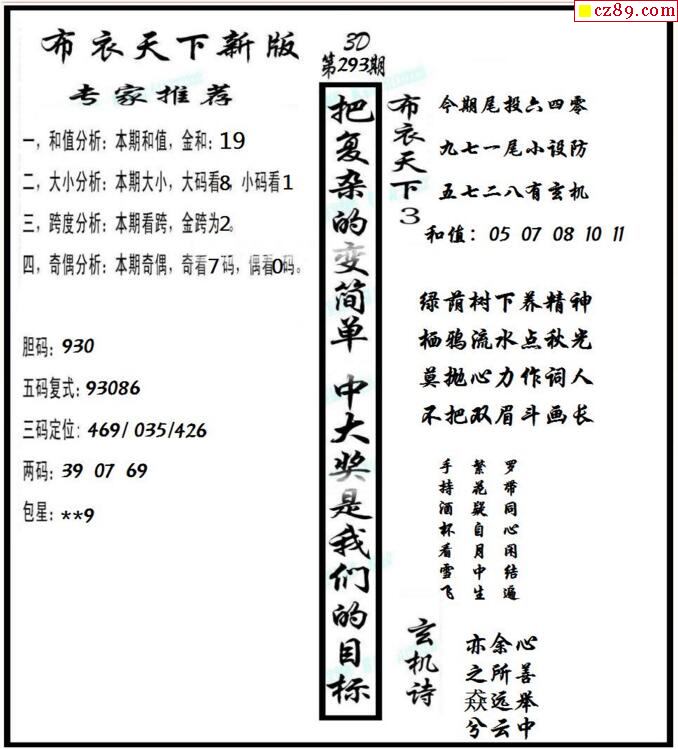 cz89.com
布衣天下新版
专家推荐
一，和值分析：本期和值，金和：19
二，大小分析：本期大小，大码看8，小码看1
三，跨度分析：本期看跨，金跨为2。
四，奇偶分析：本期奇偶，奇看7码，偶看0码。
胆码：930
五码复式：93086
三码定位：469/ 035/426
两码：39 07 69
包星：**9
3D
第293期
把复杂的变简单 中大奖是我们的目标
布衣天下3
今期尾投六四零
九七一尾小设防
五七二八有玄机
和值：05 07 08 10 11
绿荫树下养精神
栖鸦流水点秋光
莫抛心力作词人
不把双眉斗画长
手持酒杯看雪飞
繁花疑自月中生
罗带同心闲结遍
玄机诗
亦余心
之所善
猋远举
兮云中